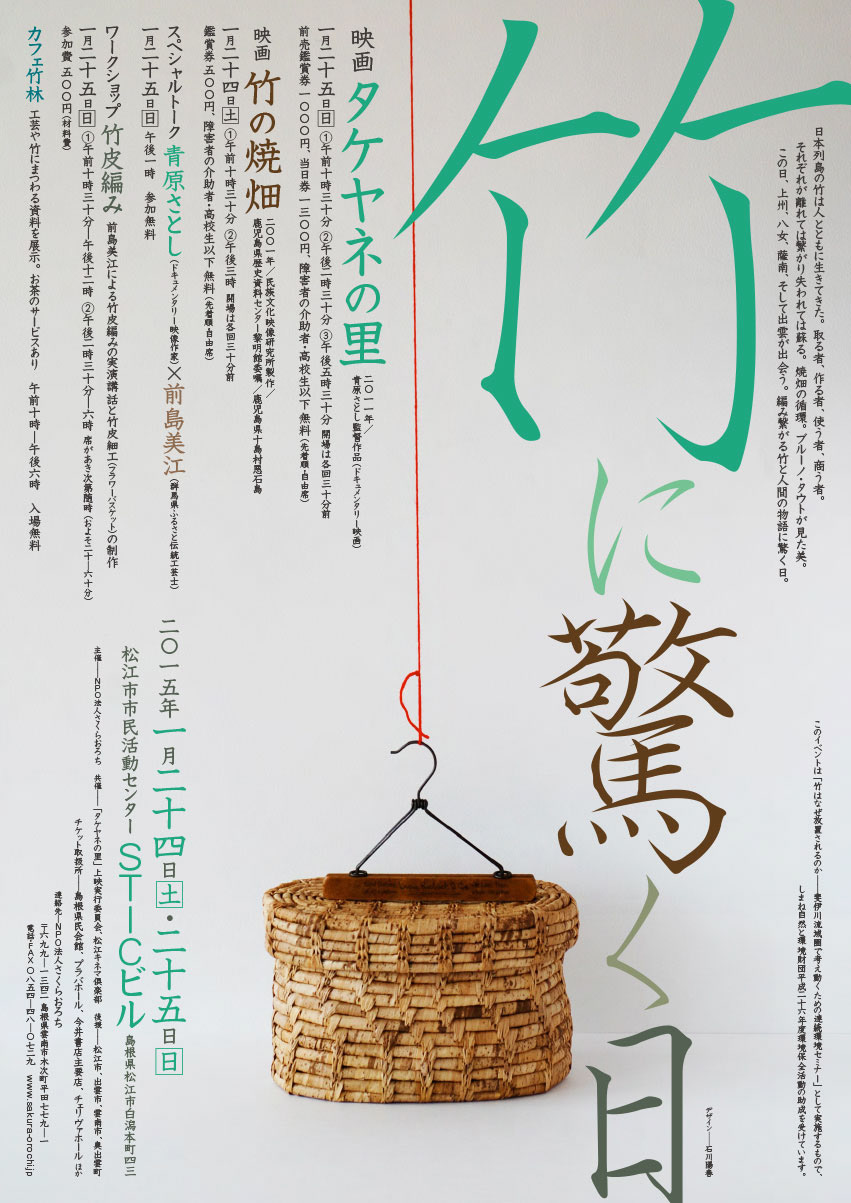 竹に驚く日
日本列島の竹は人とともに生きてきた。取る者、作る者、使う者、商う者。
それぞれが離れては繋がり失われては蘇る。焼畑の循環。ブルーノ・タウトが見た美。
この日、上州、八女、薩南、そして出雲が出会う。編み繋がる竹と人間の物語に驚く日。
このイベントは「竹はなぜ放置されるのか——斐伊川流域圏で考え動くための連続環境セミナー」として実施するもので、
しまね自然と環境財団平成二十六年度環境保全活動の助成を受けています。
デザイン——石川陽春
映画 タケヤネの里
二〇一一年／
青原さとし監督作品（ドキュメンタリー映画）
一月二十五日日 ①午前十時三十分 ②午後二時三十分 ③午後五時三十分 開場は各回三十分前
前売鑑賞券 一〇〇〇円、当日券 一三〇〇円、障害者の介助者・高校生以下 無料（先着順・自由席）
映画 竹の焼畑
二〇〇一年／民族文化映像研究所製作／
鹿児島県歴史資料センター黎明館委嘱／鹿児島県十島村悪石島
一月二十四日土 ①午前十時三十分 ②午後三時 開場は各回三十分前
鑑賞券 五〇〇円、障害者の介助者・高校生以下 無料（先着順・自由席）
スペシャルトーク 青原さとし（ドキュメンタリー映像作家）×前島美江（群馬県ふるさと伝統工芸士）
一月二十五日日 午後一時 参加無料
ワークショップ 竹皮編み 前島美江による竹皮編みの実演講話と竹皮細工（フラワーバスケット）の制作
一月二十五日日 ①午前十時三十分—午後十二時 ②午後二時三十分—六時 席があき次第随時（およそ二十—六十分）
参加費 五〇〇円（材料費）
カフェ竹林 工芸や竹にまつわる資料を展示。お茶のサービスあり 午前十時—午後六時 入場無料
二〇一五年一月二十四日土・二十五日日
松江市市民活動センター STICビル 島根県松江市白潟本町四三
主催——NPO法人さくらおろち 共催——「タケヤネの里」上映実行委員会、松江キネマ倶楽部 後援——松江市、出雲市、雲南市、奥出雲町
チケット取扱所——島根県民会館、プラバホール、今井書店主要店、チェリヴァホール ほか
連絡先—NPO法人さくらおろち
〒六九九—一三四二 島根県雲南市木次町平田七七九—一
電話・FAX 〇八五四—四八—〇七二九 www.sakura-orochi.jp